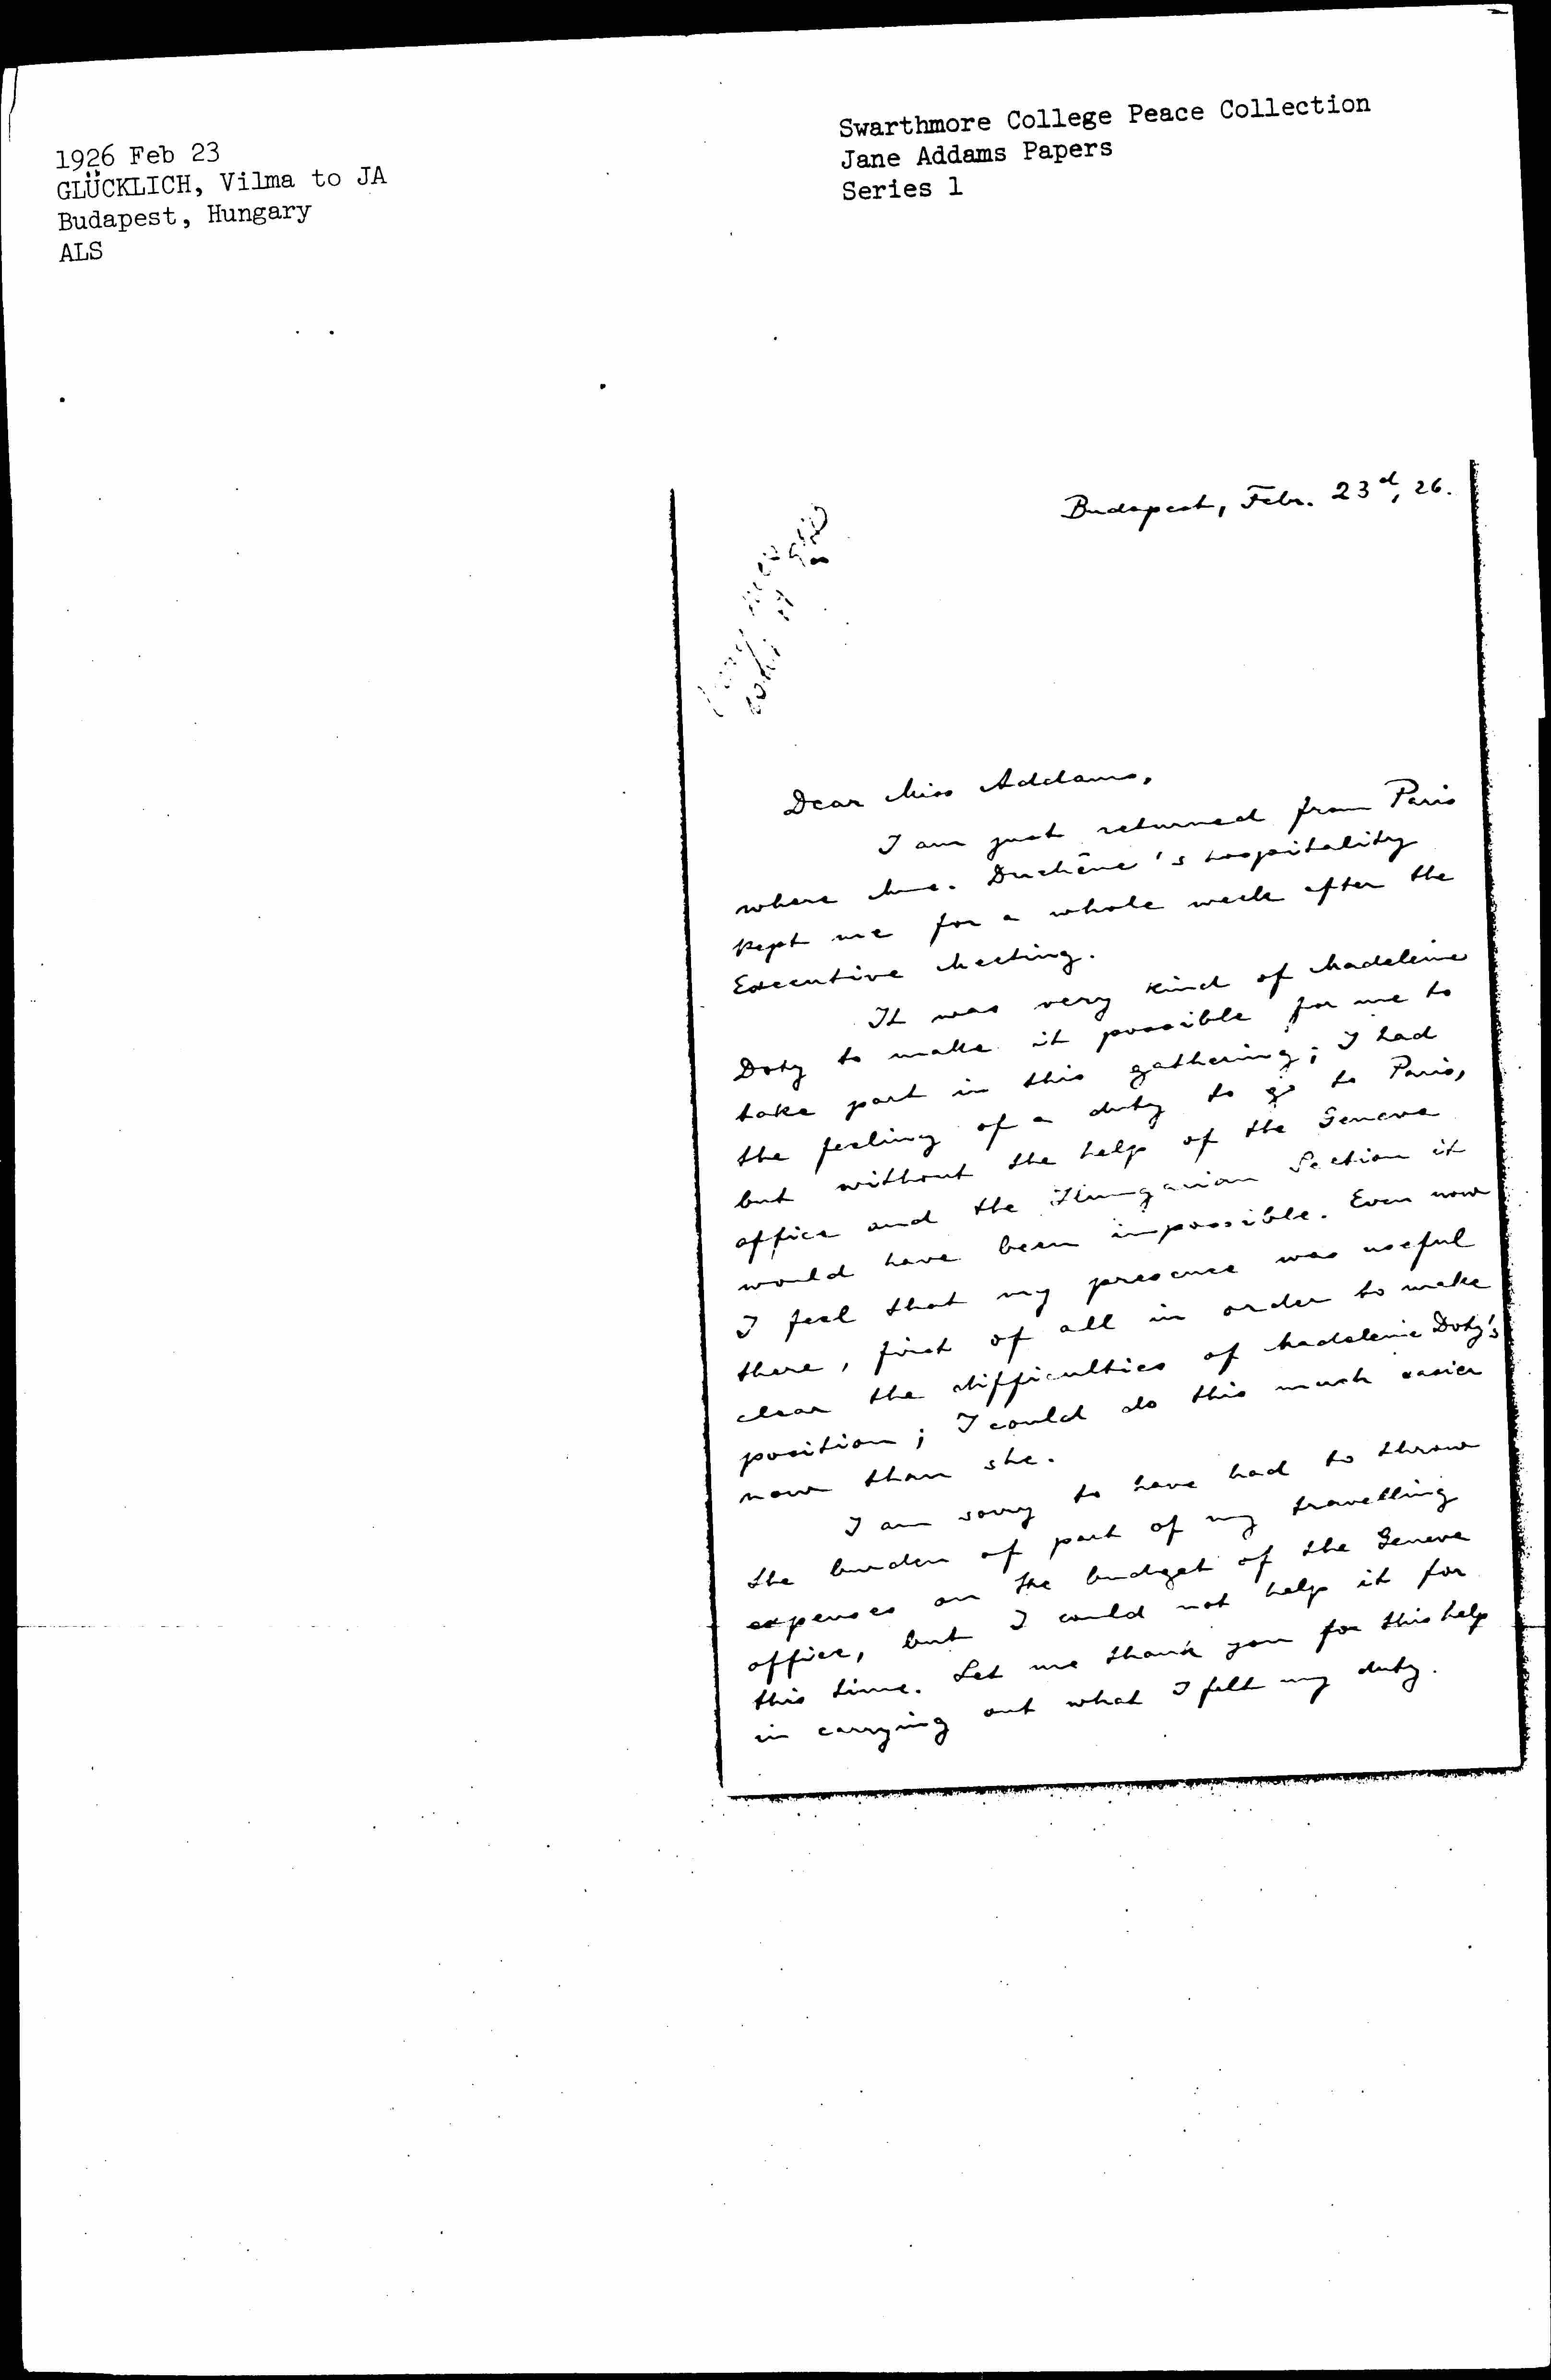 1926 Feb 23
GLÜCKLICH, Vilma to JA
Budapest, Hungary
ALS
Swarthmore College Peace Collection
Jane Addams Papers
Series 1
Budapest, Febr. 23d, 26.
Dear Miss Addams,
I am just returned from Paris
where Mme. Duchêne's hospitality
kept me for a whole week after the
Executive Meeting.
It was very kind of Madeleine
Doty to make it possible for me to
take part in this gathering; I had
the feeling of a duty to go to Paris,
but without the help of the Geneva
office and the Hungarian Section it
would have been impossible. Even now
I feel that my presence was useful
there, first of all in order to make
clear the difficulties of Madeleine Doty's
position; I could do this much easier
now than she.
I am sorry to have had to throw
the burden of part of my travelling
expenses on the budget of the Geneva
office, but I could not help it for
this time. Let me thank you for this help
in carrying out what I felt my duty.